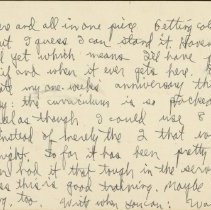 here and all in one piece. Getting col
but I guess I can stand it. Haven
d yet which means I'll have
if and when it ever gets here.
my one weeks' anniversary th
the curriculum is so packed
as though I could use 8
instead of merely the 2 that
ight. So far it has been pretty
had it that tough in the serv
this is good training. Maybe
too. Write when you can. Wa